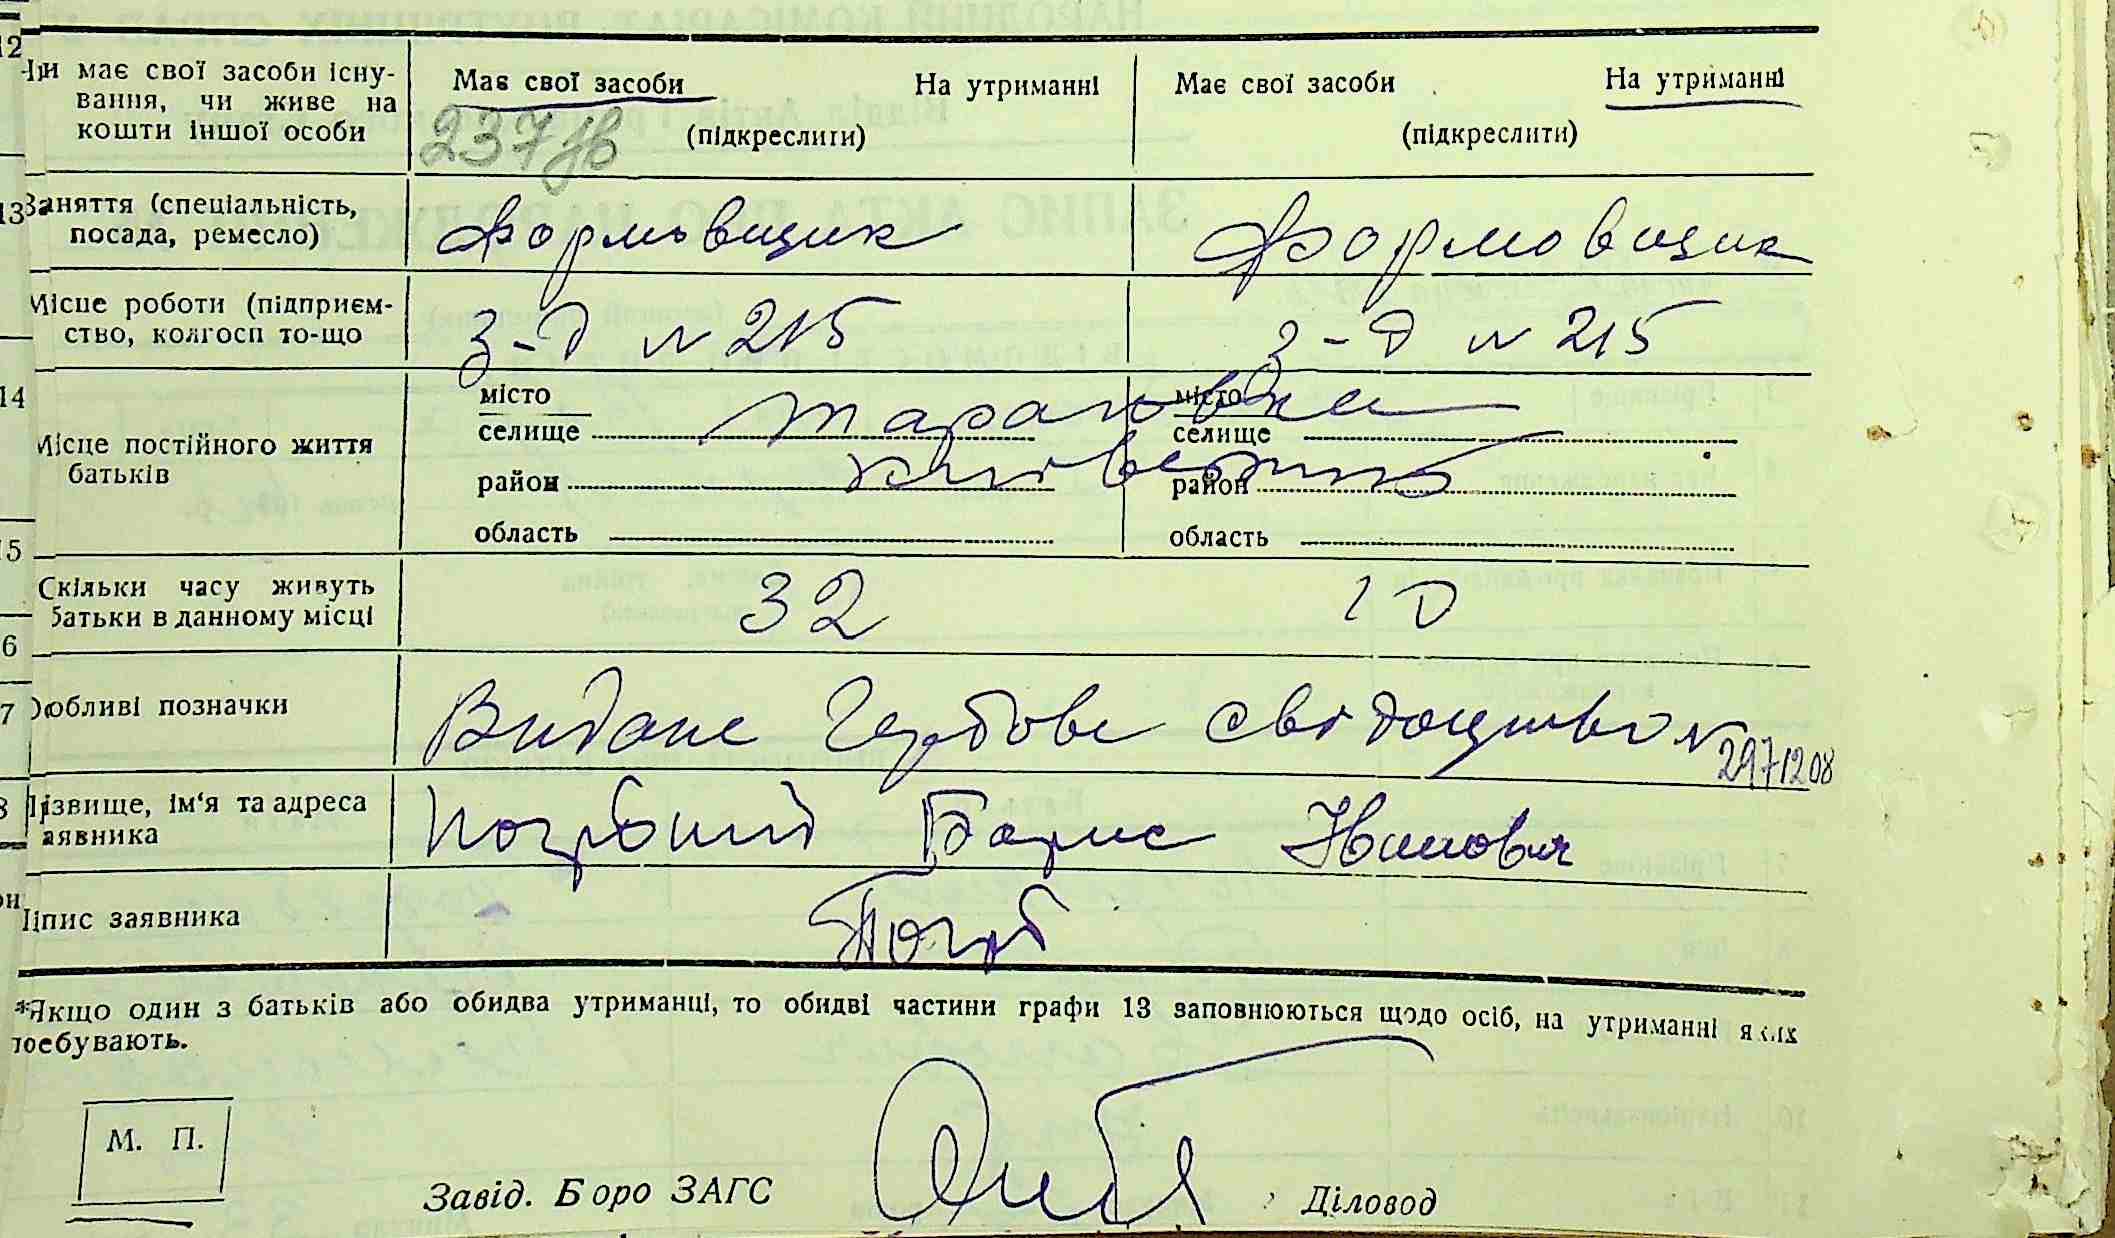 12
Чи має свої засоби існу-
вання, чи живе на
кошти іншої особи
Має свої засоби На утриманні
(підкреслити)
Має свої засоби На утриманні
(підкреслити)
237
13 Заняття (спеціальність,
посада, ремесло)
Формовщик Формовщик
Місце роботи (підприєм-
ство, колгосп то-що
з-д N 215 з-д N 215
14
Місце постійного життя
батьків
місто місто
селище селище
район район
область область
15
Скільки часу живуть
батьки в данному місці
32 10
6
7 Особливі позначки
Видане Гербове свідоцтво N
2971208
8 Прізвище, ім'я та адреса
заявника
Погрібний Борис Іванович
Підпис заявника
Погрб
*Якщо один з батьків або обидва утриманці, то обидві частини графи 13 заповнюються щодо осіб, на утриманні яких
перебувають.
М. П.
Завід. Боро ЗАГС Діловод